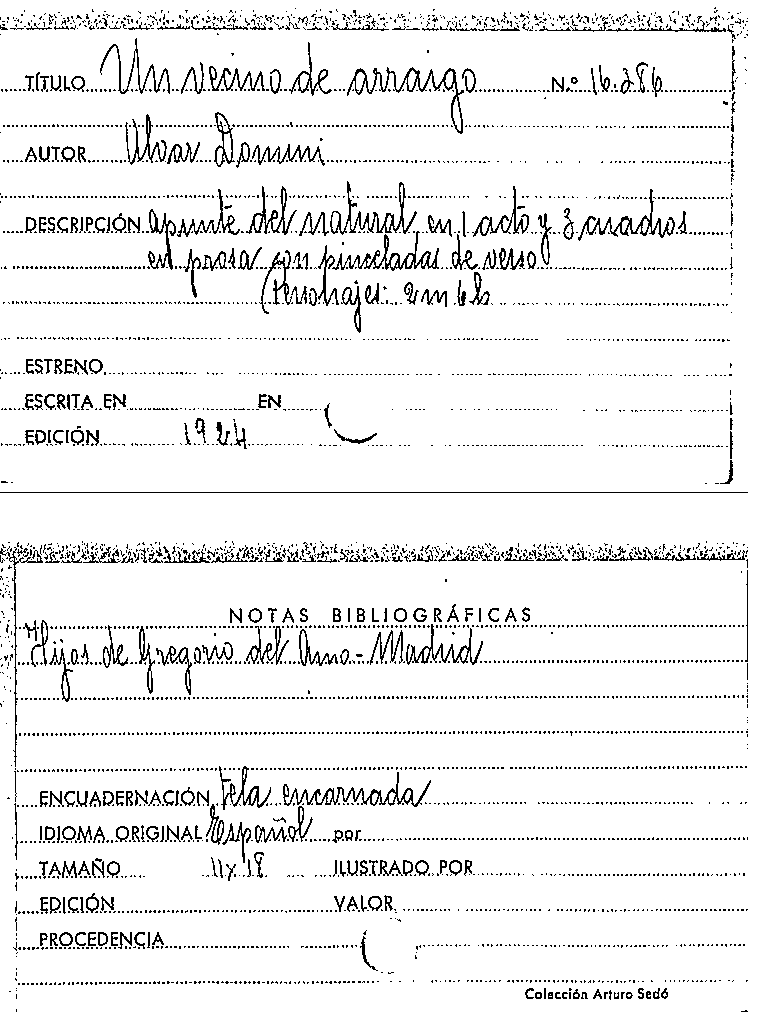 TÍTULO Un vecino de arraigo N.º 16.286
AUTOR Alvar Domini
DESCRIPCIÓN apunte del natural, en 1 acto y 3 cuadros
en prosa con pinceladas de verso
(Personajes: 2 m 6 h
ESTRENO
ESCRITA EN EN
EDICIÓN 1924
NOTAS BIBLIOGRÁFICAS
Hijos de Gregorio del Amo - Madrid
ENCUADERNACIÓN tela encarnada
IDIOMA ORIGINAL Español por
TAMAÑO 11 x 18 ILUSTRADO POR
EDICIÓN VALOR
PROCEDENCIA
Colección Arturo Sedó